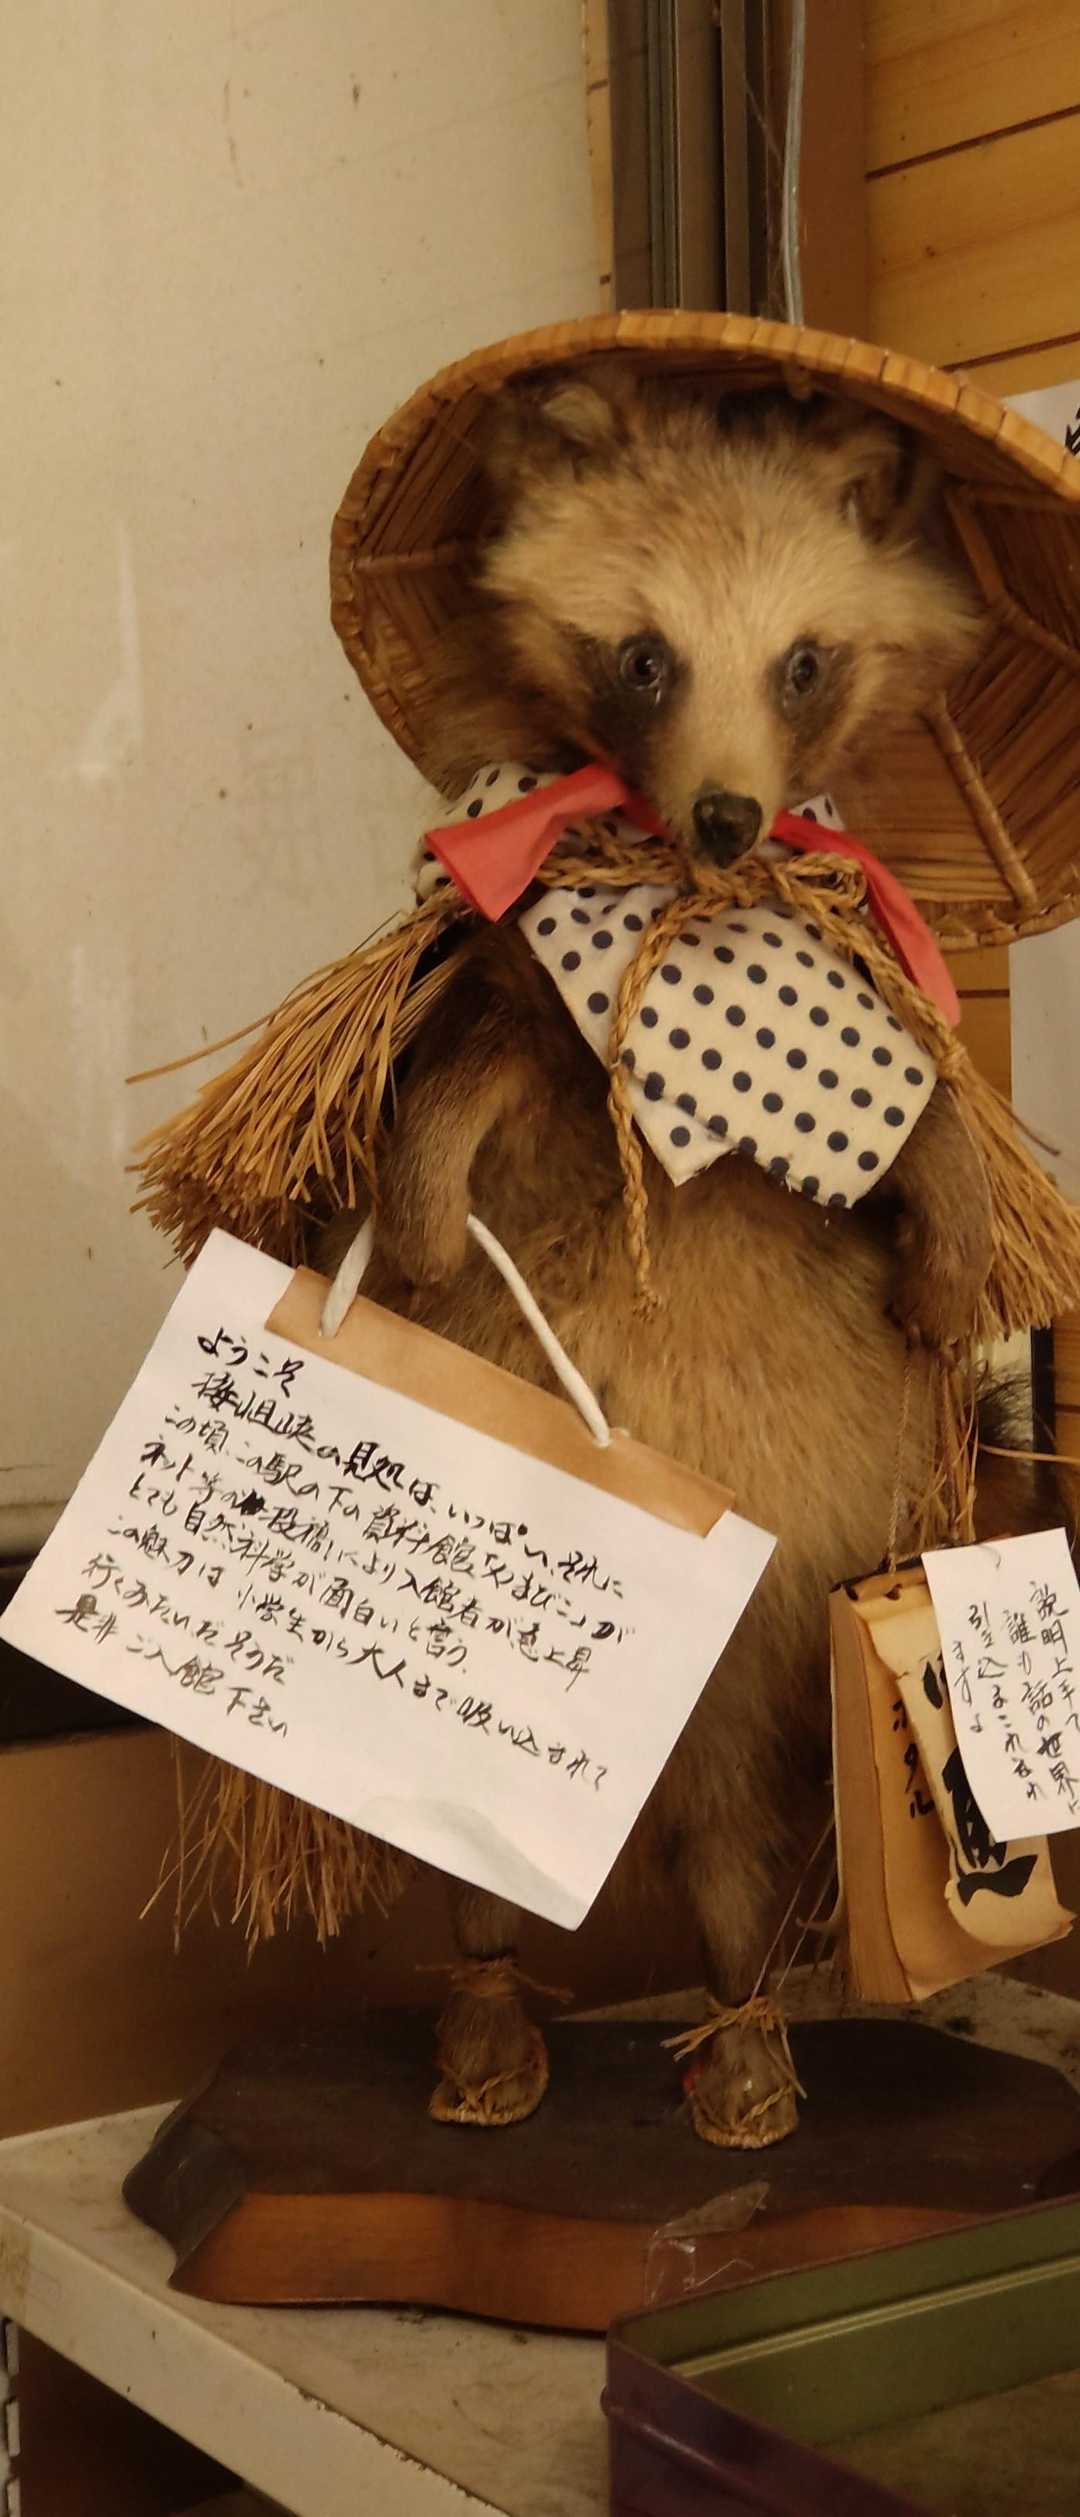 ようこそ
梅峡の見処は、いっぱい、それに
この頃、この駅の下の資料館「やまびこ」が
ネット等の投稿により入館者が急上昇
とても自然科学が面白いと言う、
この魅力は 小学生から大人まで吸い込まれて
行くみたいだそうだ
是非 ご入館下さい
説明上手で
誰も話の世界に
引き込まれ
ますよ
ホタル